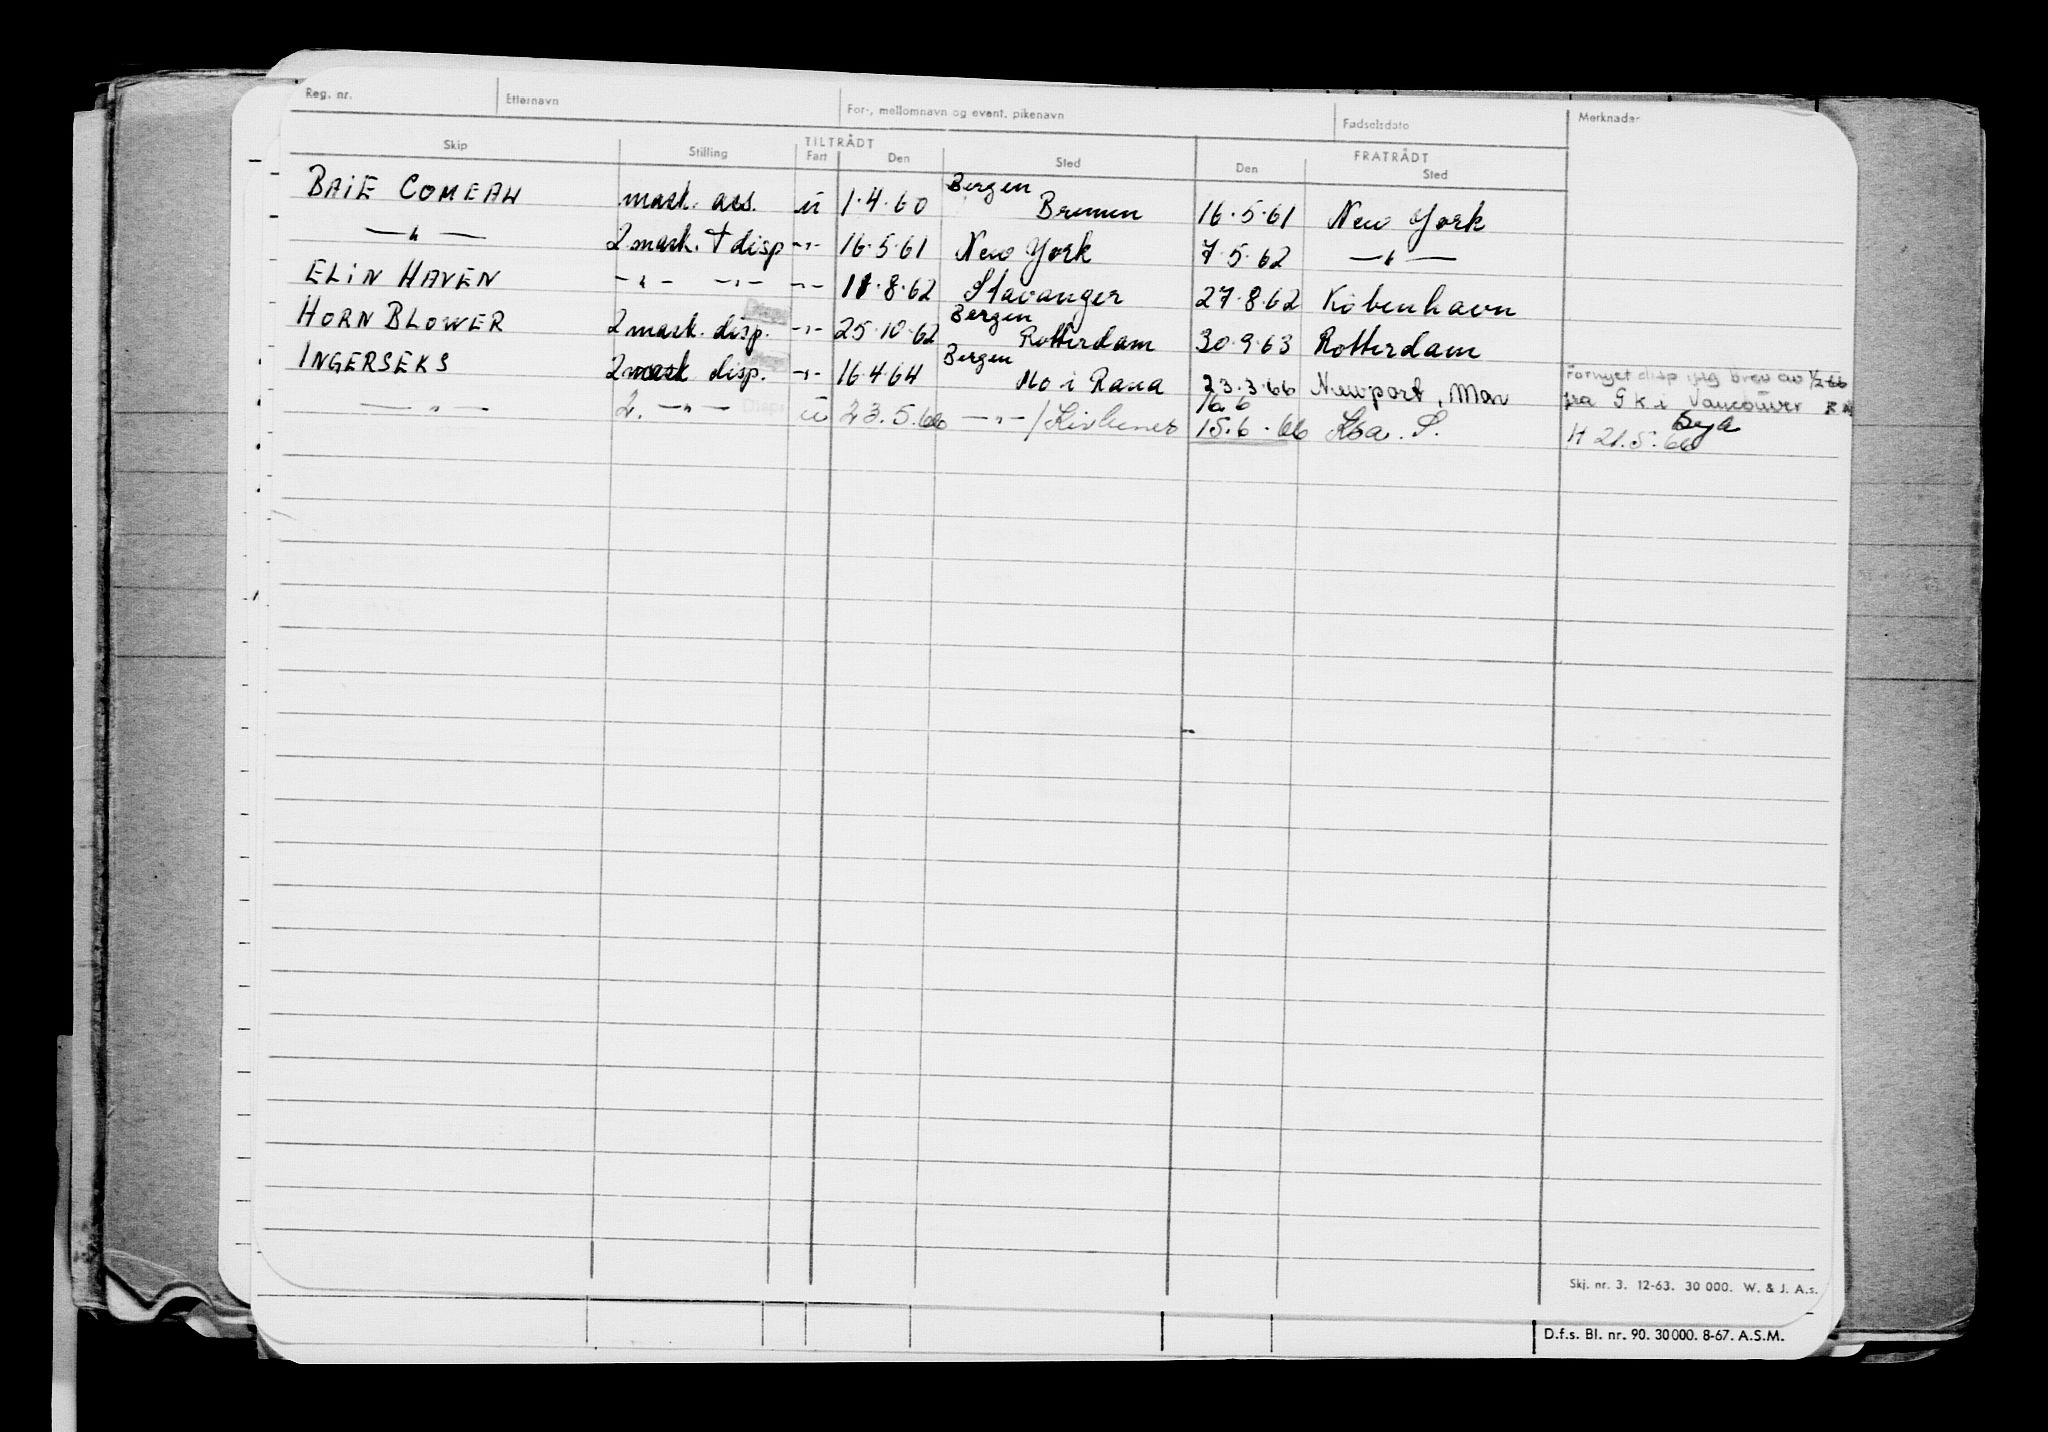 Reg. nr. Etternavn For-, mellomnavn og event. pikenavn Fødselsdato Merknader
TILTRÅDT FRATRÅDT
Skip Stilling Fart Den Sted Den Sted
BAIE COMEAU mask. ass. u 1.4.60 Bergen Bremen 16.5.61 New York
—"— 2 mask. † disp -"- 16.5.61 New York 7.5.62 —"—
ELIN HAVEN -"- -"- -"- 11.8.62 Stavanger 27.8.62 København
HORN BLOWER 2 mask. disp. -"- 25.10.62 Bergen Rotterdam 30.9.63 Rotterdam
INGERSEKS 2 mask disp. -"- 16.4.64 Bergen Mo i Rana 23.3.66 Newport, Mon Fornyet disp brev av 1/2 66
16.6 fra GK i Vancouver
—"— 2. —"— u 23.5.66 —"—/ 15.6.66 H 21.5.66
Skj. nr. 3. 12-63. 30 000. W. & J. A.s.
D.f.s. Bl. nr. 90. 30000. 8-67. A.S.M.